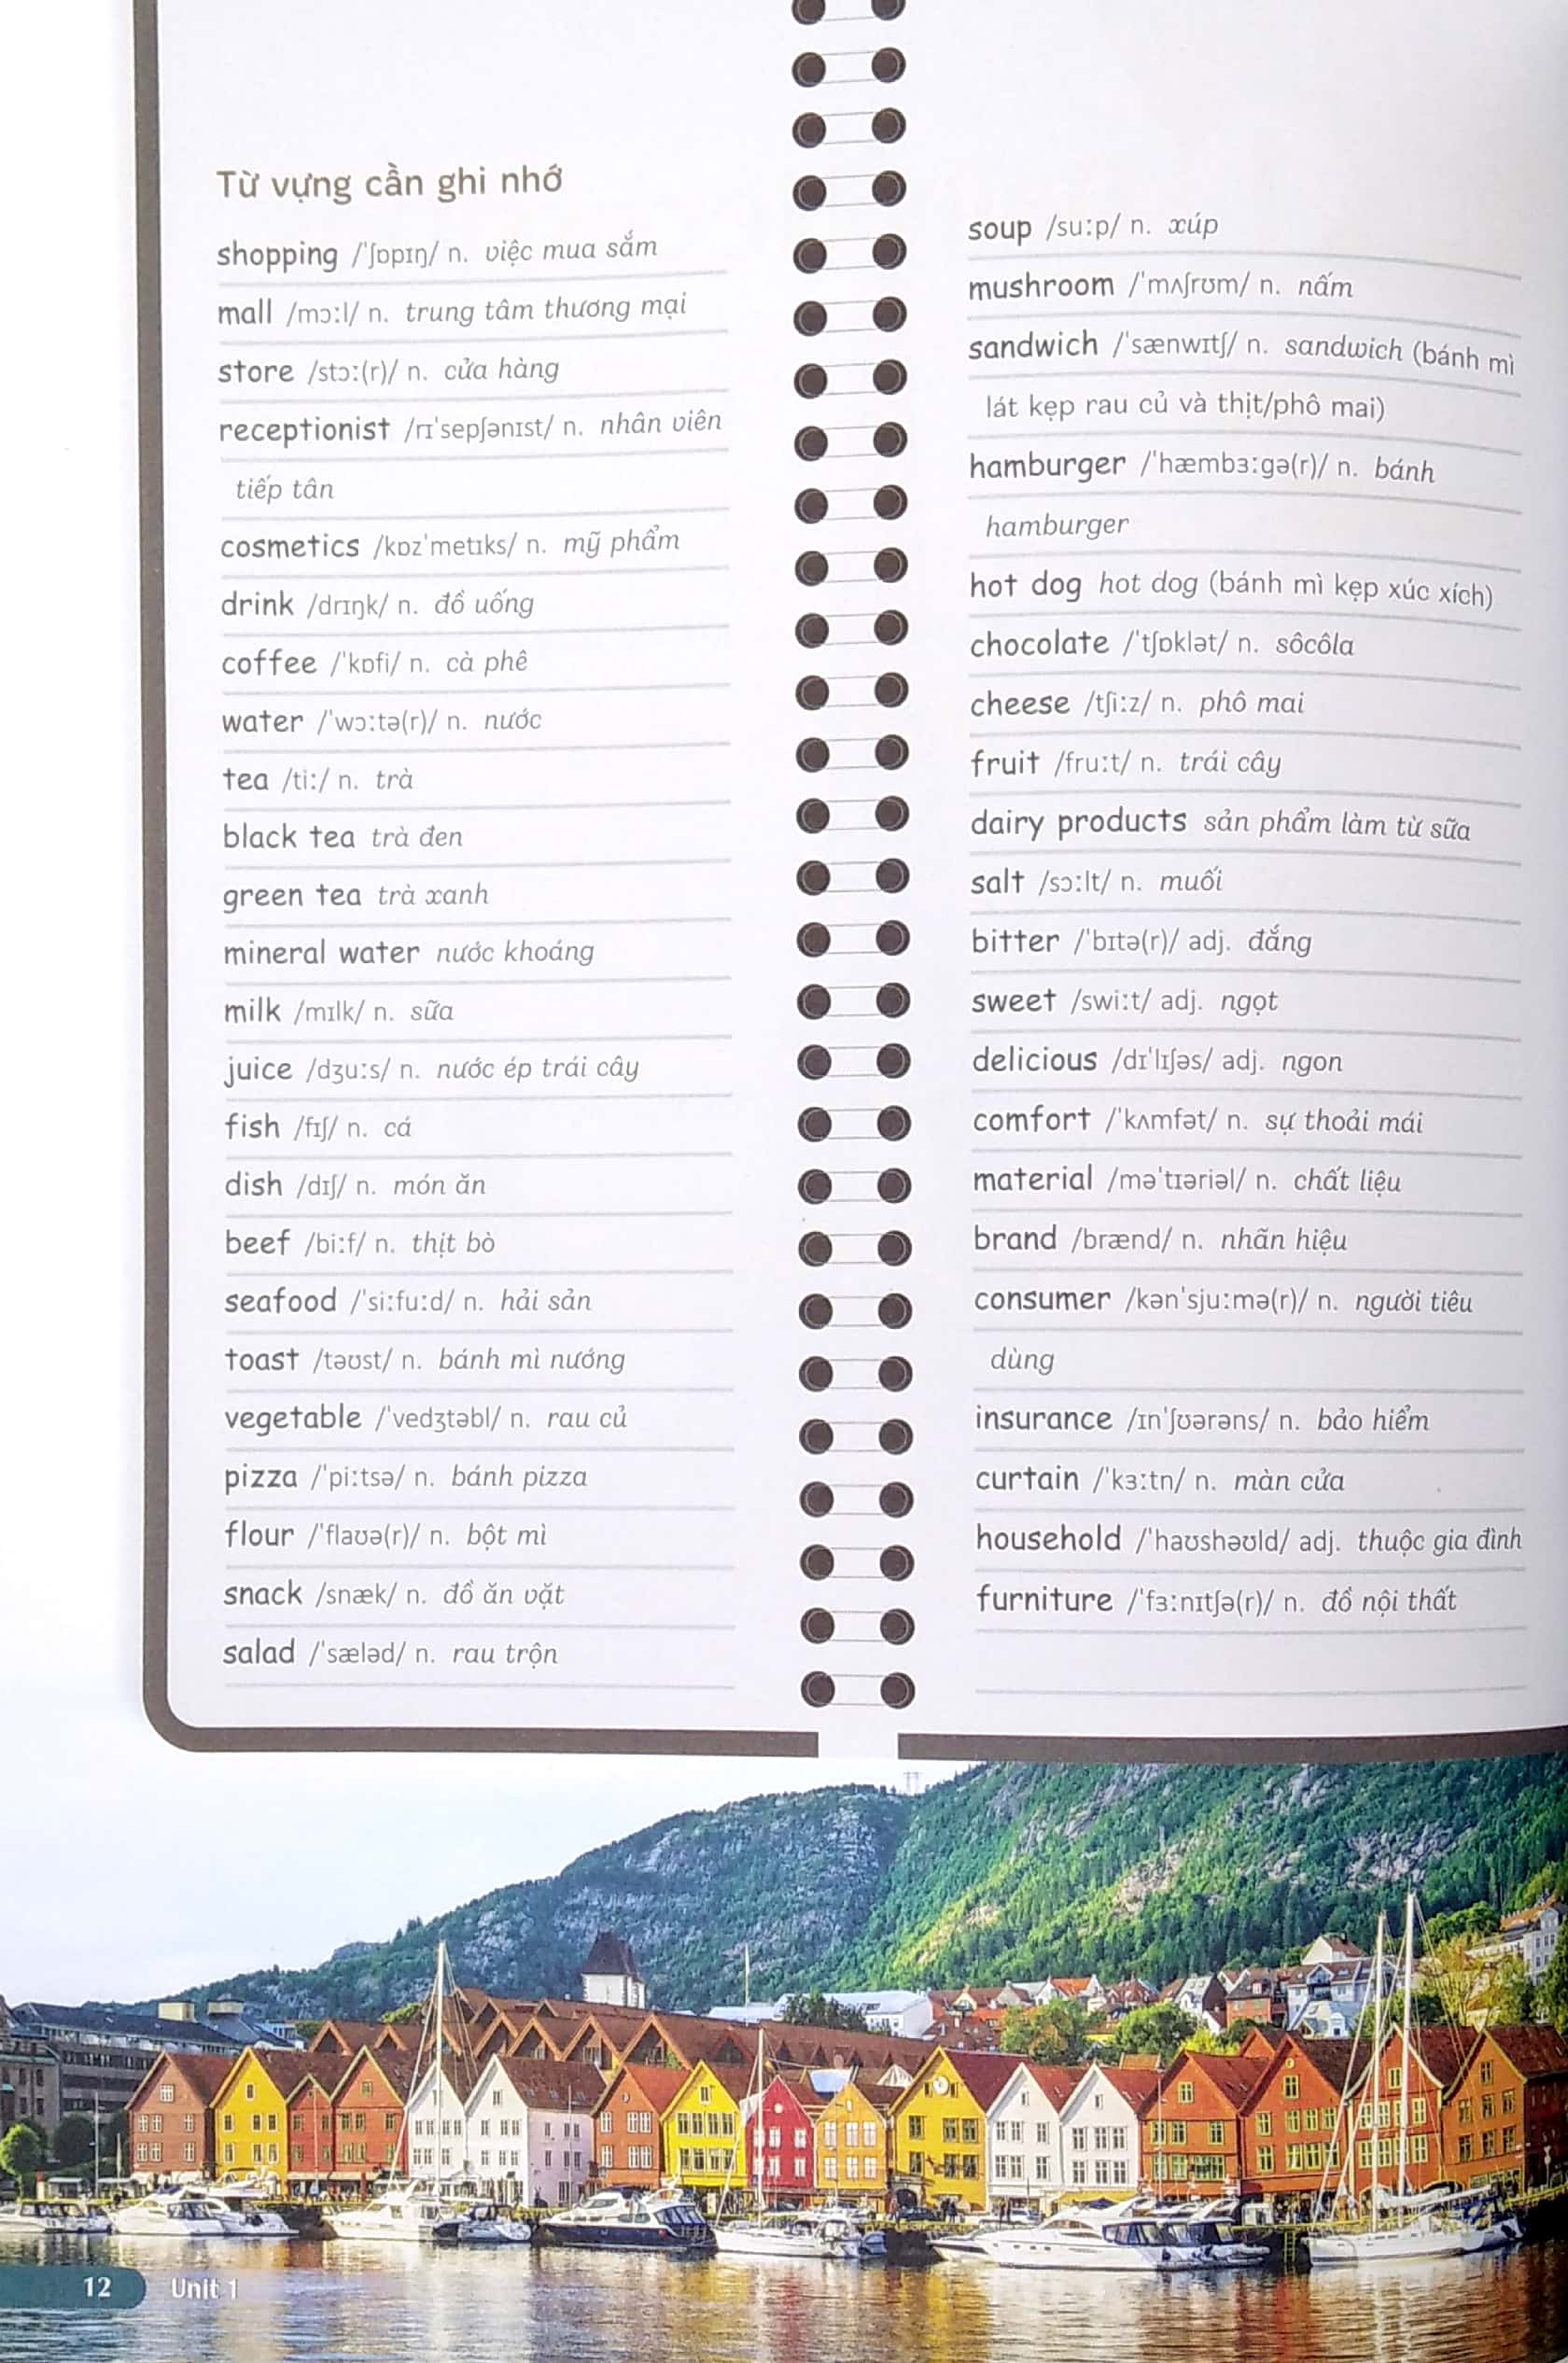 Từ vựng cần ghi nhớ
shopping /ˈʃɒpɪŋ/ n. việc mua sắm
mall /mɔːl/ n. trung tâm thương mại
store /stɔː(r)/ n. cửa hàng
receptionist /rɪˈsepʃənɪst/ n. nhân viên
tiếp tân
cosmetics /kɒzˈmetɪks/ n. mỹ phẩm
drink /drɪŋk/ n. đồ uống
coffee /ˈkɒfi/ n. cà phê
water /ˈwɔːtə(r)/ n. nước
tea /tiː/ n. trà
black tea trà đen
green tea trà xanh
mineral water nước khoáng
milk /mɪlk/ n. sữa
juice /dʒuːs/ n. nước ép trái cây
fish /fɪʃ/ n. cá
dish /dɪʃ/ n. món ăn
beef /biːf/ n. thịt bò
seafood /ˈsiːfuːd/ n. hải sản
toast /təʊst/ n. bánh mì nướng
vegetable /ˈvedʒtəbl/ n. rau củ
pizza /ˈpiːtsə/ n. bánh pizza
flour /ˈflaʊə(r)/ n. bột mì
snack /snæk/ n. đồ ăn vặt
salad /ˈsæləd/ n. rau trộn
soup /suːp/ n. xúp
mushroom /ˈmʌʃrʊm/ n. nấm
sandwich /ˈsænwɪtʃ/ n. sandwich (bánh mì
lát kẹp rau củ và thịt/phô mai)
hamburger /ˈhæmbɜːgə(r)/ n. bánh
hamburger
hot dog hot dog (bánh mì kẹp xúc xích)
chocolate /ˈtʃɒklət/ n. sôcôla
cheese /tʃiːz/ n. phô mai
fruit /fruːt/ n. trái cây
dairy products sản phẩm làm từ sữa
salt /sɔːlt/ n. muối
bitter /ˈbɪtə(r)/ adj. đắng
sweet /swiːt/ adj. ngọt
delicious /dɪˈlɪʃəs/ adj. ngon
comfort /ˈkʌmfət/ n. sự thoải mái
material /məˈtɪəriəl/ n. chất liệu
brand /brænd/ n. nhãn hiệu
consumer /kənˈsjuːmə(r)/ n. người tiêu
dùng
insurance /ɪnˈʃʊərəns/ n. bảo hiểm
curtain /ˈkɜːtn/ n. màn cửa
household /ˈhaʊshəʊld/ adj. thuộc gia đình
furniture /ˈfɜːnɪtʃə(r)/ n. đồ nội thất
12 Unit 1